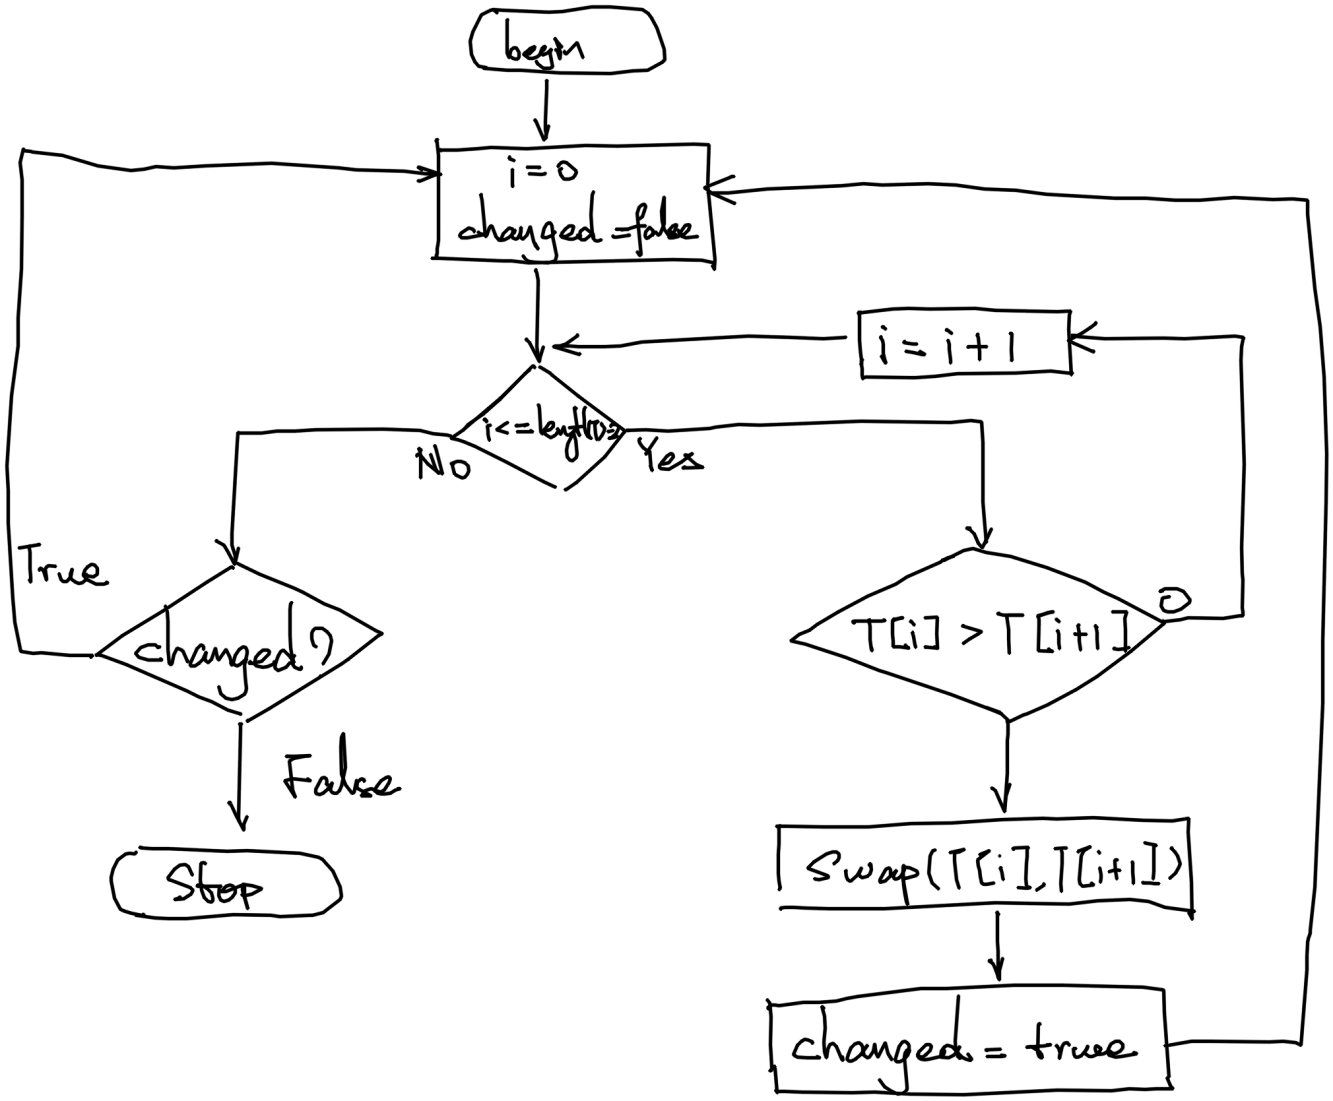 begin
i = 0
changed = false
i = i + 1
No
Yes
True
changed?
T[i] > T[i+1]
0
False
Stop
Swap(T[i], T[i+1])
changed = true